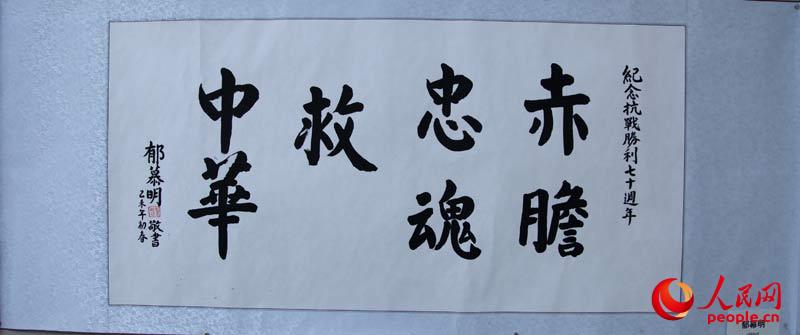 紀念抗戰勝利七十週年
赤膽
忠魂
救
中華
郁慕明 敬書
乙未年初春
人民网
people.cn
郁慕明